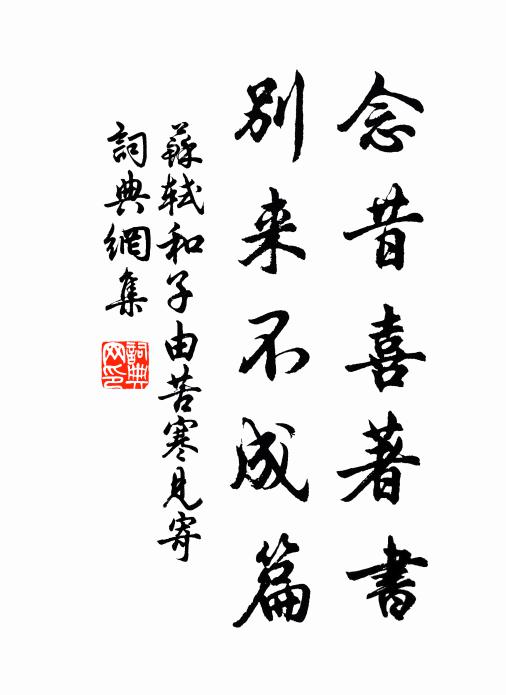 念昔喜著書
別来不成篇
蘇軾和子由苦寒見寄
詞典網集
詞典网印